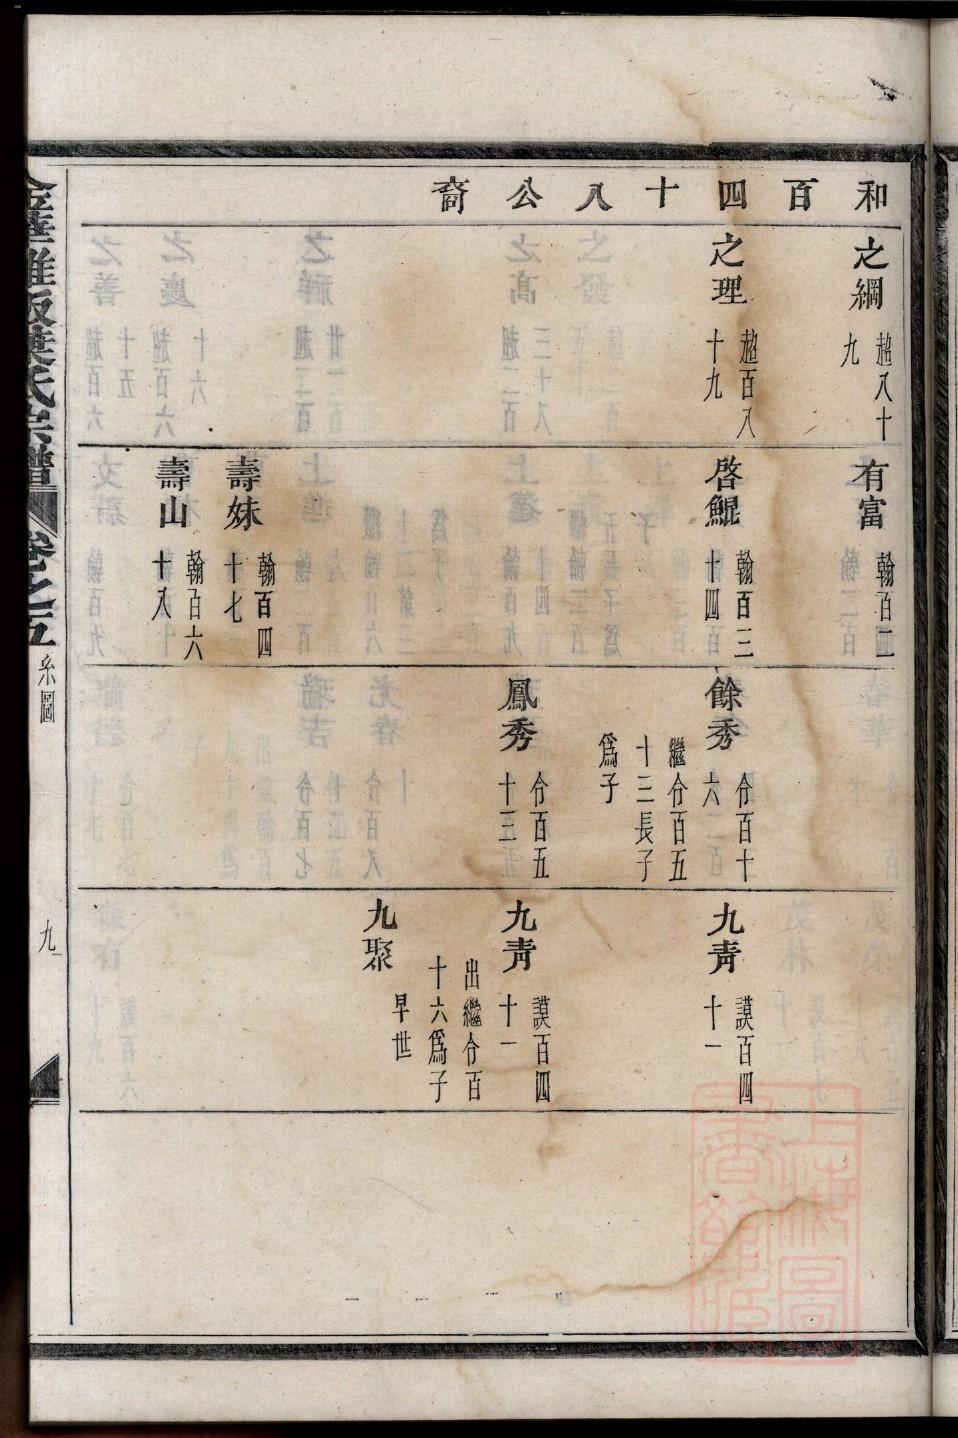 和百四十八公裔
之綱
趂八十
九
之理
趂百八
十九
有富
翰百一
啓鯤
翰百三
十四
壽妹
翰百四
十七
壽山
翰百六
十八
餘秀
仱百十
六
繼仱百五
十三長子
爲子
鳳秀
仱百五
十三
九靑
謨百四
十一
九靑
謨百四
十一
出繼仱百
十六爲子
九聚
早世
葉氏宗譜
卷之五
系圖
九
上海圖書館藏